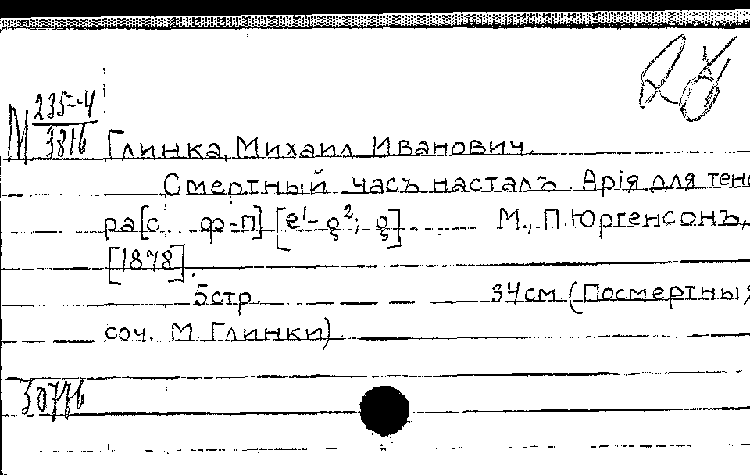 М 235-4
3816
Глинка, Михаил Иванович.
Смертный часъ насталъ. Арія для тено
ра [с ф-п] [e¹-g²; g] М., П. Юргенсонъ,
[1878].
5 стр. 34 см (Посмертныя
соч. М Глинки)